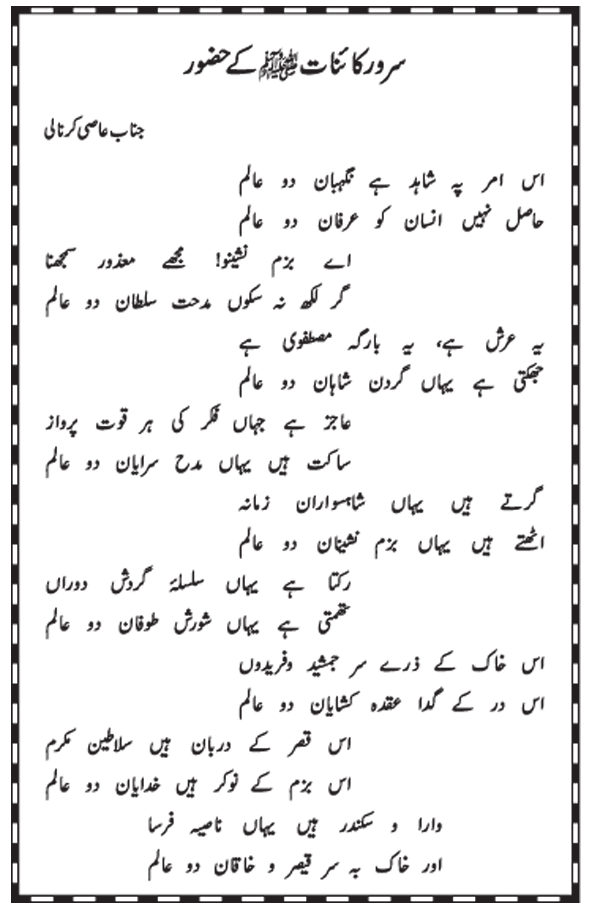 سرور کائنات ﷺ کے حضور
جناب عاصی کرنالی
اس امر پہ شاہد ہے نگہبان دو عالم
حاصل نہیں انسان کو عرفان دو عالم
اے بزم نشینو! مجھے معذور سمجھنا
گر لکھ نہ سکوں مدحت سلطان دو عالم
یہ عرش ہے، یہ بارگہ مصطفوی ہے
جھکتی ہے یہاں گردن شاہان دو عالم
عاجز ہے جہاں فکر کی ہر قوت پرواز
ساکت ہیں یہاں مدح سرایان دو عالم
گرتے ہیں یہاں شاہسواران زمانہ
اٹھتے ہیں یہاں بزم نشینان دو عالم
رکتا ہے یہاں سلسلۂ گردش دوراں
تھمتی ہے یہاں شورش طوفان دو عالم
اس خاک کے ذرے سر جمشید وفریدوں
اس در کے گدا عقدہ کشایان دو عالم
اس قصر کے دربان ہیں سلاطین مکرم
اس بزم کے نوکر ہیں خدایان دو عالم
وارا و سکندر ہیں یہاں ناصیہ فرسا
اور خاک بہ سر قیصر و خاقان دو عالم